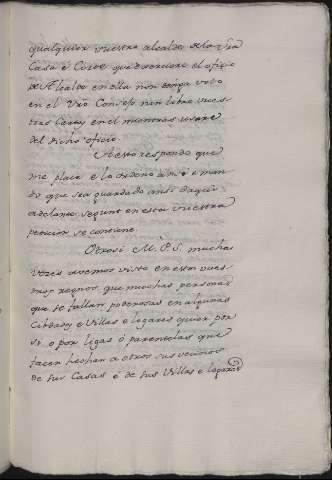 qualquier vuestro alcalde de la v̄ra
Casa é Corte que exerciere el oficio
de Alcalde en ella non tenga voto
en el Vr̄o Consejo nin libre vues
tras Cartas en el mientras usare
del dicho oficio.
A esto respondo que
me place e lo ordeno ansi e man
do que sea guardado ansi daqui
adelante segunt en esta vuestra
peticion se contiene.
Otrosi M. P. S. muchas
veces avemos visto en estos vues
tros regnos que muchas personas
que se fallan poderosas en algunas
Cibdades e Villas e logares quier por
si o por ligas ó parentelas que
facen hechan a otros sus vecinos
de sus Casas é de sus Villas e logares